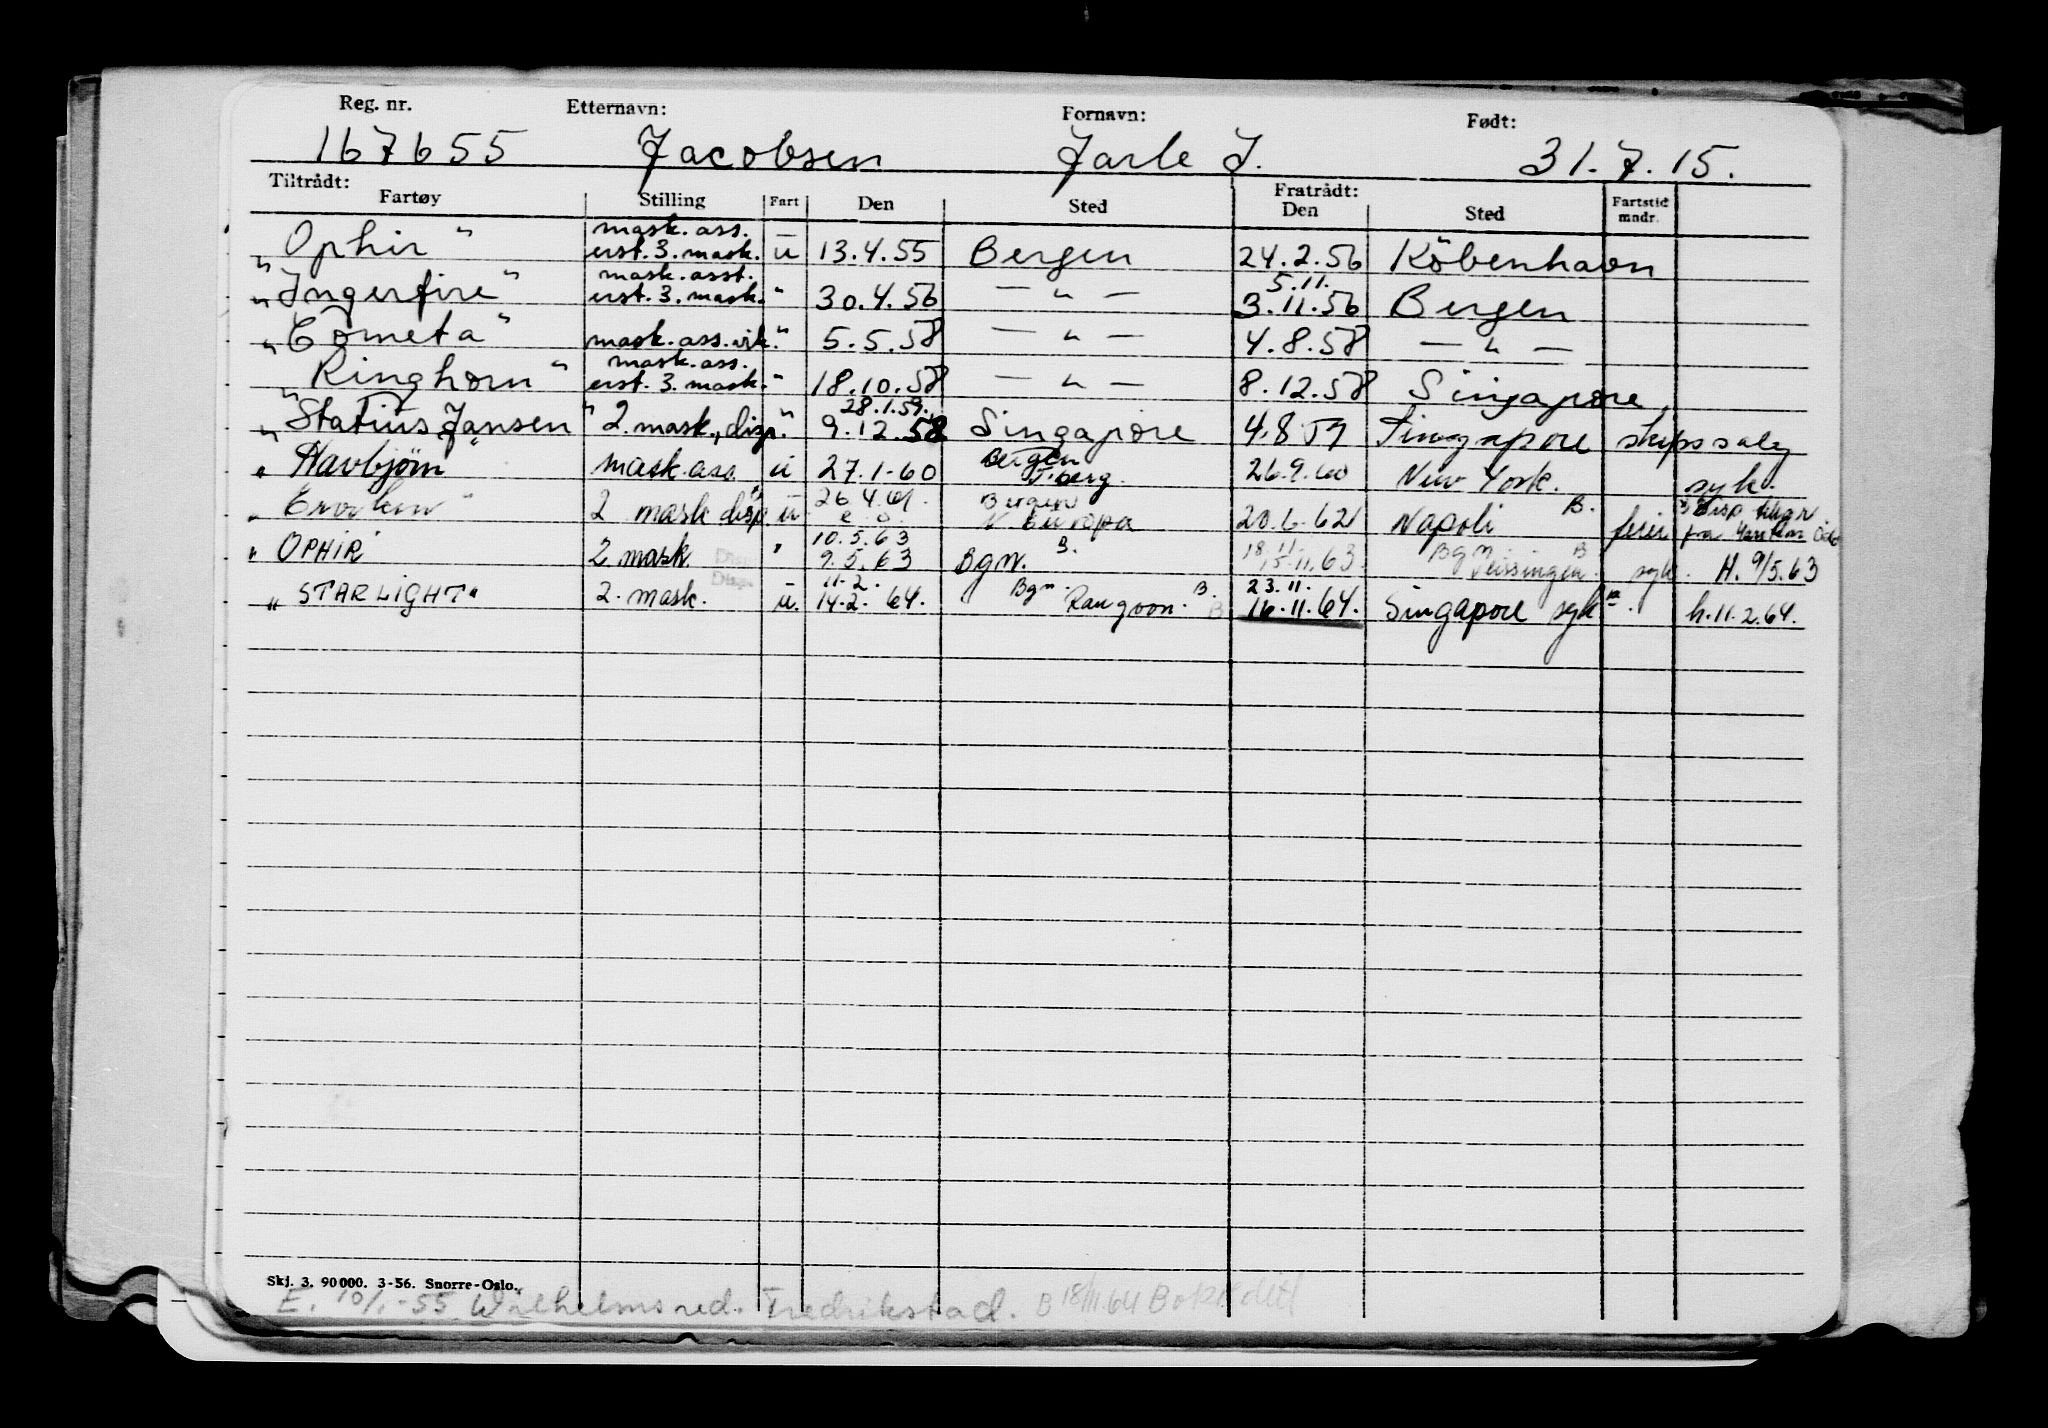 Reg. nr. Etternavn: Fornavn: Født:
167655 Jacobsen Jarle J. 31.7.15.
Tiltrådt: Fratrådt:
Fartøy Stilling Fart Den Sted Den Sted Fartstid mndr.
mask. ass.
"Ophir" erst. 3. mask. u 13.4.55 Bergen 24.2.56 København
mask. asst. 5.11.
"Ingerfire" erst. 3. mask. " 30.4.56 — " — 3.11.56 Bergen
"Cometa" mask. ass. vik. " 5.5.58 — " — 4.8.58 — " —
mask. ass.
"Ringhorn" erst. 3. mask. " 18.10.58 — " — 8.12.58 Singapore
28.1.59.
"Statius Jansen" 2. mask., disp. " 9.12.58 Singapore 4.8 59 Singapore skipssalg
Bergen
"Havbjørn" mask. ass. u 27.1-60 26.9.60 New York. syk.
26.4.61. Bergen B.
2 mask disp u V Europa 20.6.62 Napoli
10.5.63 B. 18.11 Bgn B
"OPHIR" 2 mask " 9.5.63 Bgn. 15.11.63. syk. H. 9/5.63
11-2. Bgn. B. 23.11.
"STARLIGHT" 2. mask. u. 14-2. 64. Rangoon. 16.11.64. Singapore syk h. 11.2.64.
Skj. 3. 90000. 3-56. Snorre-Oslo.
E. 10/1-55 Wilhelmsred. Fredrikstad. B 18/11.64